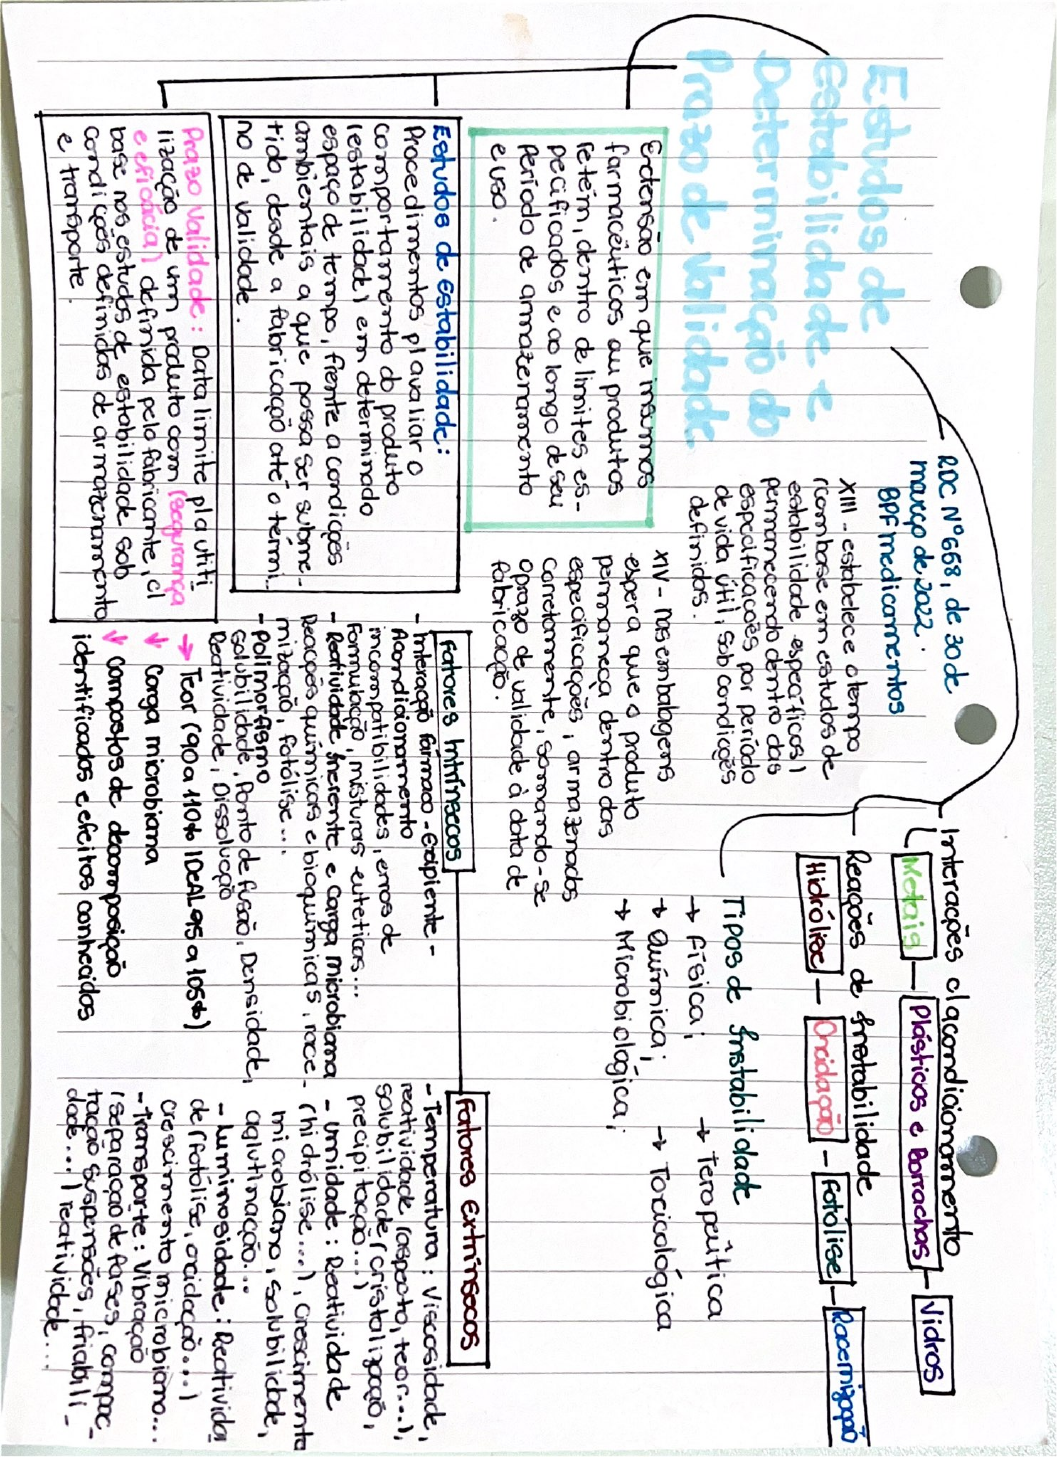 Estudos de
Estabilidade e
Determinação do
Prazo de Validade.
Extensão em que insumos
farmacêuticos ou produtos
retém, dentro de limites es-
pecificados e ao longo de seu
período de armazenamento
e uso.
Estudos de Estabilidade:
Procedimentos p/ avaliar o
comportamento do produto
(estabilidade) em determinado
espaço de tempo, frente a condições
ambientais a que possa ser subme-
tido, desde a fabricação até o térmi-
no de validade.
Prazo Validade: Data limite p/a utiti
lização de um produto com (segurança
e eficácia) definida pelo fabricante, c/
base nos estudos de estabilidade sob
condições definidas de armazenamento
e transporte.
RDC Nº 658, de 30 de
março de 2022.
BPF medicamentos
XIII - estabelece o tempo
(com base em estudos de
estabilidade específicos)
permanecendo dentro das
especificações por período
de vida útil, sob condições
definidos.
XIV - nas embalagens
espera que o produto
permaneça dentro das
especificações, armazenados
corretamente, somando-se
o prazo de validade à data de
fabricação.
Interações c/ acondicionamento
Metais - Plásticos e Borrachas - Vidros
Reações de Instabilidade
Hidrólise - Oxidação - Fotólise - Racemização
Tipos de Instabilidade
→ Física;
→ Terapeútica
→ Química;
→ Toxicológica
→ Microbiológica;
Fatores Intrínsecos
- Interação fármaco - Excipiente -
Acondicionamento
incompatibilidades, erros de
formulação, misturas eutéticas...
- Reatividade Inerente e carga microbiana
Reações químicas e bioquímicas, race-
mização, fotólise...
- Polimorfismo
Solubilidade, Ponto de fusão, Densidade,
Reatividade, Dissolução
→ Teor (90 a 110% IDEAL 95 a 105%)
→ Carga microbiana
→ Compostos de decomposição
identificados e efeitos conhecidos
Fatores Extrínsecos
- Temperatura: Viscosidade,
reatividade (aspecto, teor...),
solubilidade (cristalização,
precipitação...)
- Umidade: Reatividade
(hidrólise...), crescimento
microbiano, solubilidade,
aglutinação...
- Luminosidade: Reativida
de (fotólise, oxidação...)
crescimento microbiano...
- Transporte: Vibração
(separação de fases, compac-
tação suspensões, friabili-
dade...) reatividade...